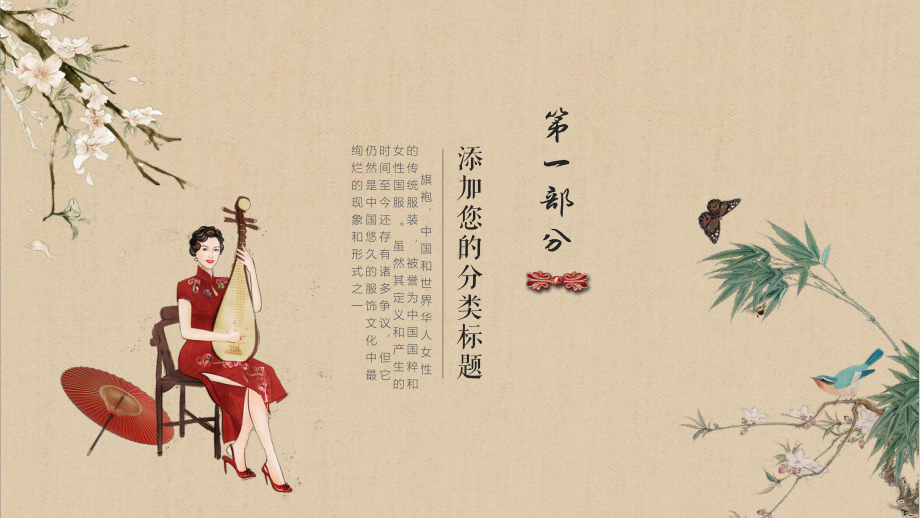 第一部分
添加您的分类标题
旗袍，中国和世界华人女性
的传统服装，被誉为中国国粹和
女性国服。虽然其定义和产生的
时间至今还存有诸多争议，但它
仍然是中国悠久的服饰文化中最
绚烂的现象和形式之一